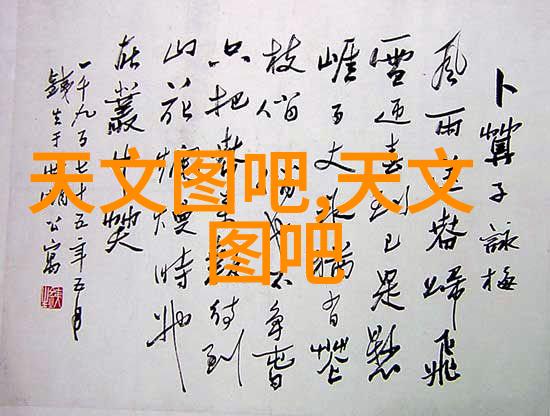 卜算子詠梅
風雨送春歸飛
雪迎春到已是懸
崖百丈冰猶有花
枝俏俏也不争春
只把春来報待到
山花爛漫時她
在叢中笑
一千九百七十五年五月
公寓
天文图吧,天文
图吧